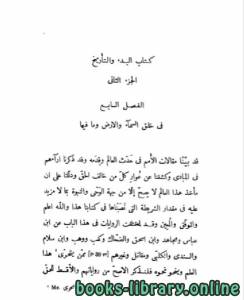 كتاب البدء والتأريخ
الجزء الثانى
الفصل السابع
فى خلق السماء والارض وما فيها
قد بيّنّا مقالات الأمم فى حدث العالم وقِدَمه وقد ذكرنا آراءهم
فى المبادى وكشفنا عن عوار كلّ من خالف الحقّ ودلّلنا على ان
مأخذ هذا العالم لا يصحّ إلّا من جهة الوحى والنبوة بما لا مزيد
عليه فى مقدار الشريطة التى ضمنّاها فى كتابنا هذا والله اعلم
والموفّق والمعين وقد اختلفت الروايات فى هذا الباب عن ابن
عبّاس ومجاهد وابن اسحق والضحّاك وكعب ووهب وابن سلام
والسدى والكلبى ومقاتل وغيرهم ممن يتحرّى هذا
العلم وينحو نحوه فلنذكر الاصحّ من رواياتهم والأقسط للحقّ
www.books4arab.com